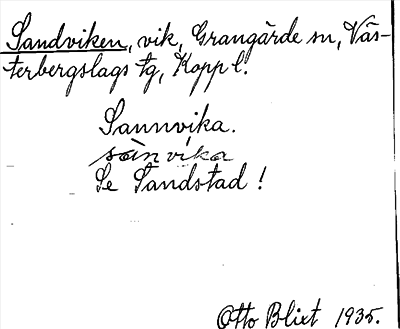 Sandviken, vik, Grangärde sn, Väs-
terbergslags tg, Kopp l.
Sannvika.
sànvíka
Se Sandstad!
Otto Blixt 1935.